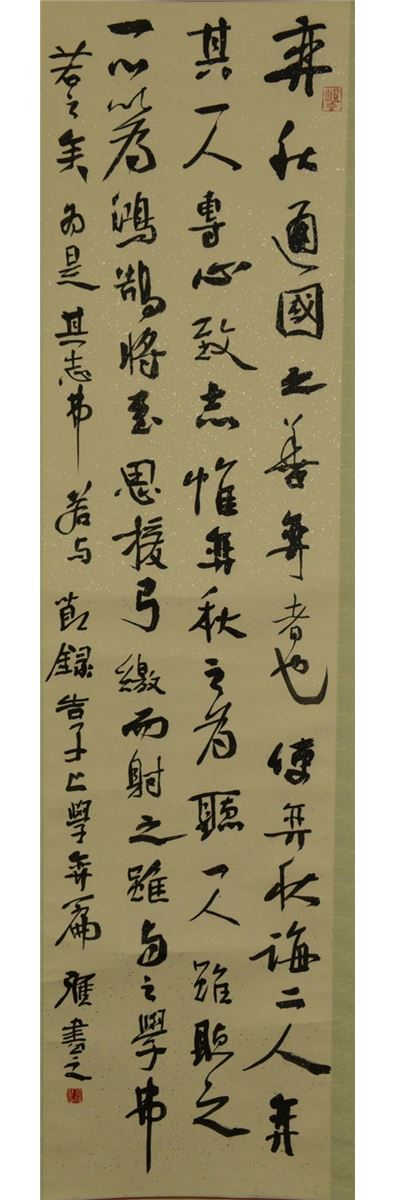 弈秋通國之善弈者也使弈秋誨二人弈
其一人專心致志惟弈秋之為聽一人雖聽之
一心以為鴻鵠將至思援弓繳而射之雖與之學弗
若之矣為是其志弗若與節錄告子上學弈篇雁書之